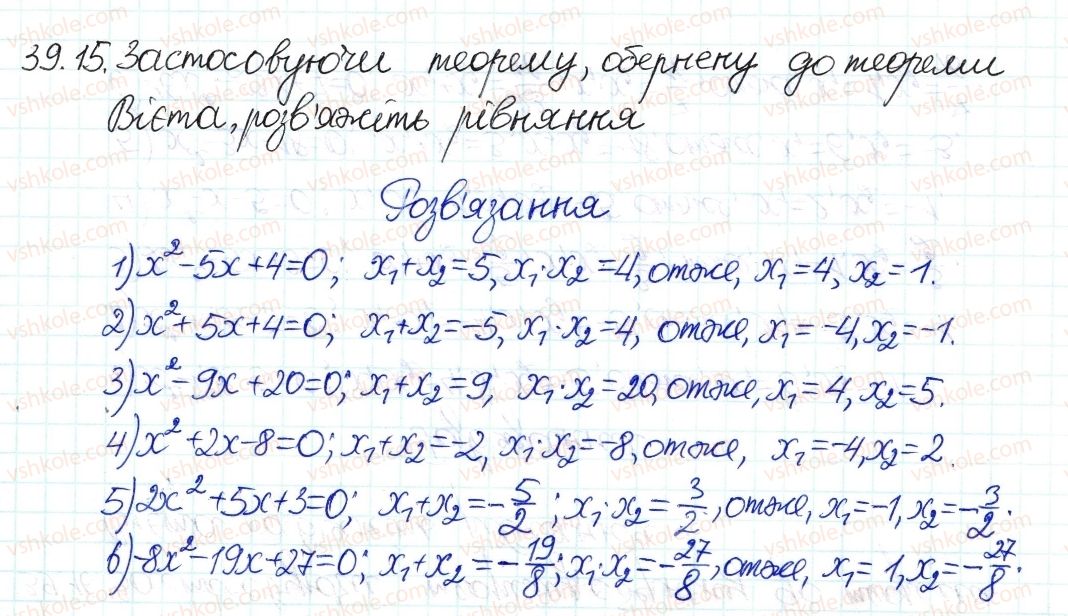 39.15. Застосовуючи теорему, обернену до теореми
Вієта, розв'яжіть рівняння
Розв'язання
1) x²-5x+4=0; x₁+x₂=5, x₁·x₂=4, отже, x₁=4, x₂=1.
2) x²+5x+4=0; x₁+x₂=-5, x₁·x₂=4, отже, x₁=-4, x₂=-1.
3) x²-9x+20=0; x₁+x₂=9, x₁·x₂=20, отже, x₁=4, x₂=5.
4) x²+2x-8=0; x₁+x₂=-2, x₁·x₂=-8, отже, x₁=-4, x₂=2.
5) 2x²+5x+3=0; x₁+x₂=-5/2; x₁·x₂=3/2, отже, x₁=-1, x₂=-3/2.
6) -8x²-19x+27=0; x₁+x₂=-19/8; x₁·x₂=-27/8, отже, x₁=1, x₂=-27/8.